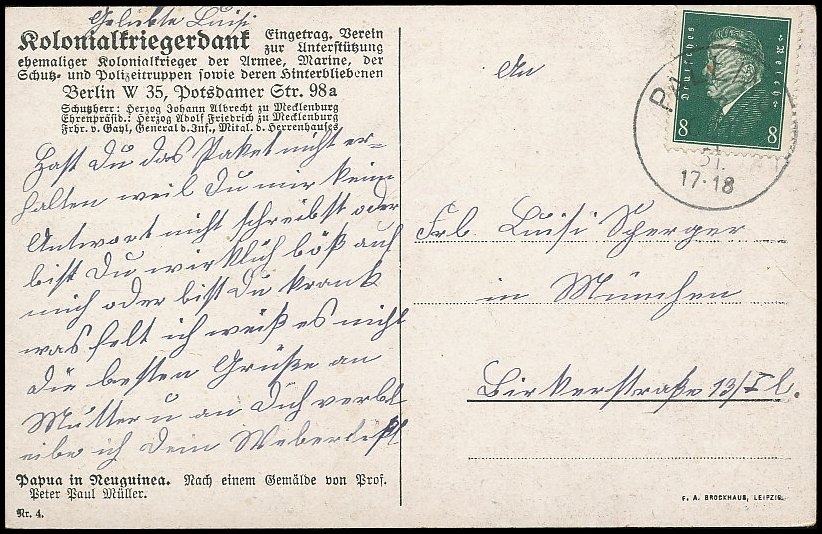 Geliebte Luisi
Kolonialkriegerdank Eingetrag. Verein
zur Unterstützung
ehemaliger Kolonialkrieger der Armee, Marine, der
Schutz- und Polizeitruppen sowie deren Hinterbliebenen
Berlin W 35, Potsdamer Str. 98a
Schutzherr: Herzog Johann Albrecht zu Mecklenburg
Ehrenpräsid.: Herzog Adolf Friedrich zu Mecklenburg
Frhr. v. Gayl, General d. Inf., Mitgl. d. Herrenhauses
Hast du das Paket nicht er-
halten weil du mir keine
Antwort nicht schreibst oder
bist Du wirklich böß auf
mich oder bist Du krank
was felt ich weiß es nicht
die besten Grüße an
Mutter u an Dich verbl
eibe ich Dein
Papua in Neuguinea. Nach einem Gemälde von Prof.
Peter Paul Müller.
Nr. 4.
An
Deutsches Reich
8 8
31.
17-18
Frl. Luisi Sperger
in München
Birkerstraße 13/I l.
F. A. BROCKHAUS, LEIPZIG.